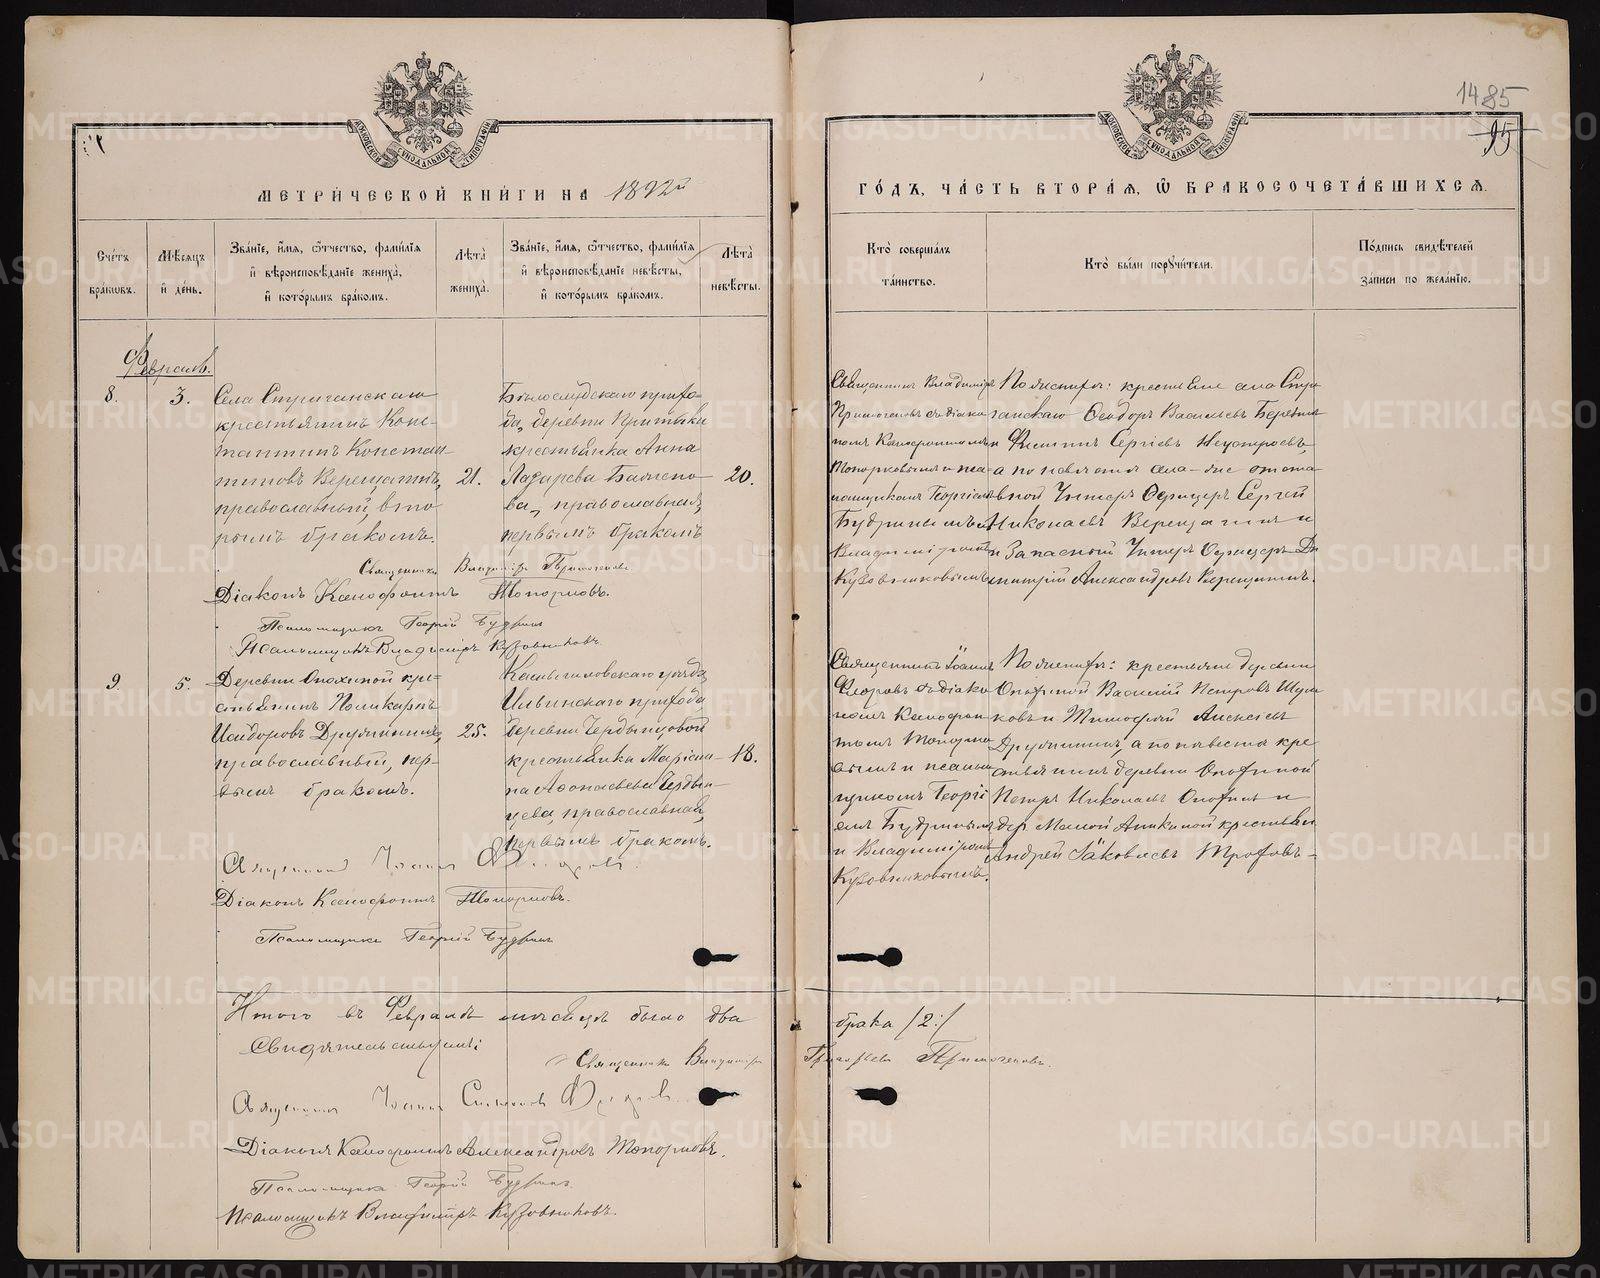 1485
95
МОСКОВСКОЙ СѴНОДАЛЬНОЙ ТИПОГРАФІИ
МОСКОВСКОЙ СѴНОДАЛЬНОЙ ТИПОГРАФІИ
МЕТРИ́ЧЕСКОЙ КНИ́ГИ НА 1892й
ГО́ДЪ, ЧА́СТЬ ВТОРА́Я, Ѡ҆ БРАКОСОЧЕТА́ВШИХСЯ.
Сче́тъ бра́ковъ.
Мѣ́сяцъ и҆ де́нь.
Зва́нїе, и҆́мя, ѻ҆́тчество, фами́лїя и҆ вѣроисповѣ́данїе жениха̀, и҆ кото́рымъ бра́комъ.
Лѣта̀ жениха̀.
Зва́нїе, и҆́мя, ѻ҆́тчество, фами́лїя и҆ вѣроисповѣ́данїе невѣ́сты, и҆ кото́рымъ бра́комъ.
Лѣта̀ невѣ́сты.
Кто̀ соверша́лъ та́инство.
Кто̀ бы́ли порꙋчи́тели.
По́дпись свидѣ́телей за́писи по жела́нїю.
Февраль.
8.
3.
Села Стриганскаго
крестьянинъ Конс-
тантинъ Констан-
тиновъ Верещагинъ,
православный, вто
рымъ бракомъ.
21.
Бѣлослудскаго прихо-
да, деревни
крестьянка Анна
Лазарева
ва, православная,
первымъ бракомъ
20.
Священникъ Владиміръ
Примогеновъ съ діако
номъ Ксенофонтомъ
Топорковымъ и пса-
ломщикомъ Георгіемъ
Будринымъ и
Владиміромъ
Кузовниковымъ
По женихѣ: крестьяне села Стри
ганскаго Ѳеодоръ Васильевъ
и Филиппъ Сергіевъ
а по невѣстѣ села-же
Унтеръ Офицеръ Сергей
Николаевъ Верещагинъ и
и Запасный Унтеръ Офицеръ Ди
митрій Александровъ Верещагинъ.
Священникъ Владиміръ Примогеновъ
Діаконъ Ксенофонтъ Топорковъ.
Псаломщикъ Георгій Будринъ
Псаломщикъ Владиміръ Кузовниковъ
9.
5.
Деревни Опохиной кре-
стьянинъ Поликарпъ
Исидоровъ Дружининъ,
православный, пер-
вымъ бракомъ.
25.
Камышловскаго уѣзда,
Ильинскаго прихода
деревни Чердынцовой
крестьянка Маріам-
на Аѳонасьева Чердын-
цева, православная,
первымъ бракомъ.
18.
Священникъ Іоаннъ
Флоровъ съ діако
номъ Ксенофон
томъ Топорко
вымъ и псалом
щикомъ Георгі
емъ Будринымъ
и Владиміромъ
Кузовниковымъ.
По женихѣ: крестьяне деревни
Опохиной Василій Петровъ
ковъ и Тимофей Алексѣевъ
Дружининъ, а по невѣстѣ кре
стьянинъ деревни Опохиной
Петръ Николаевъ Опохинъ и
дер. Малой Аникиной крестьян
Андрей Іаковлевъ
Священникъ Іоаннъ Флоровъ.
Діаконъ Ксенофонтъ Топорковъ.
Псаломщикъ Георгій Будринъ
Итого въ Февралѣ мѣсяцѣ было два брака /2:/
Свидѣтельствуемъ:
Священникъ Владиміръ Григорьевъ Примогеновъ.
Священникъ Іоаннъ Флоровъ
Діаконъ Ксенофонтъ Александровъ Топорковъ.
Псаломщикъ Георгій Будринъ.
Псаломщикъ Владиміръ Кузовниковъ.
METRIKI.GASO-URAL.RU